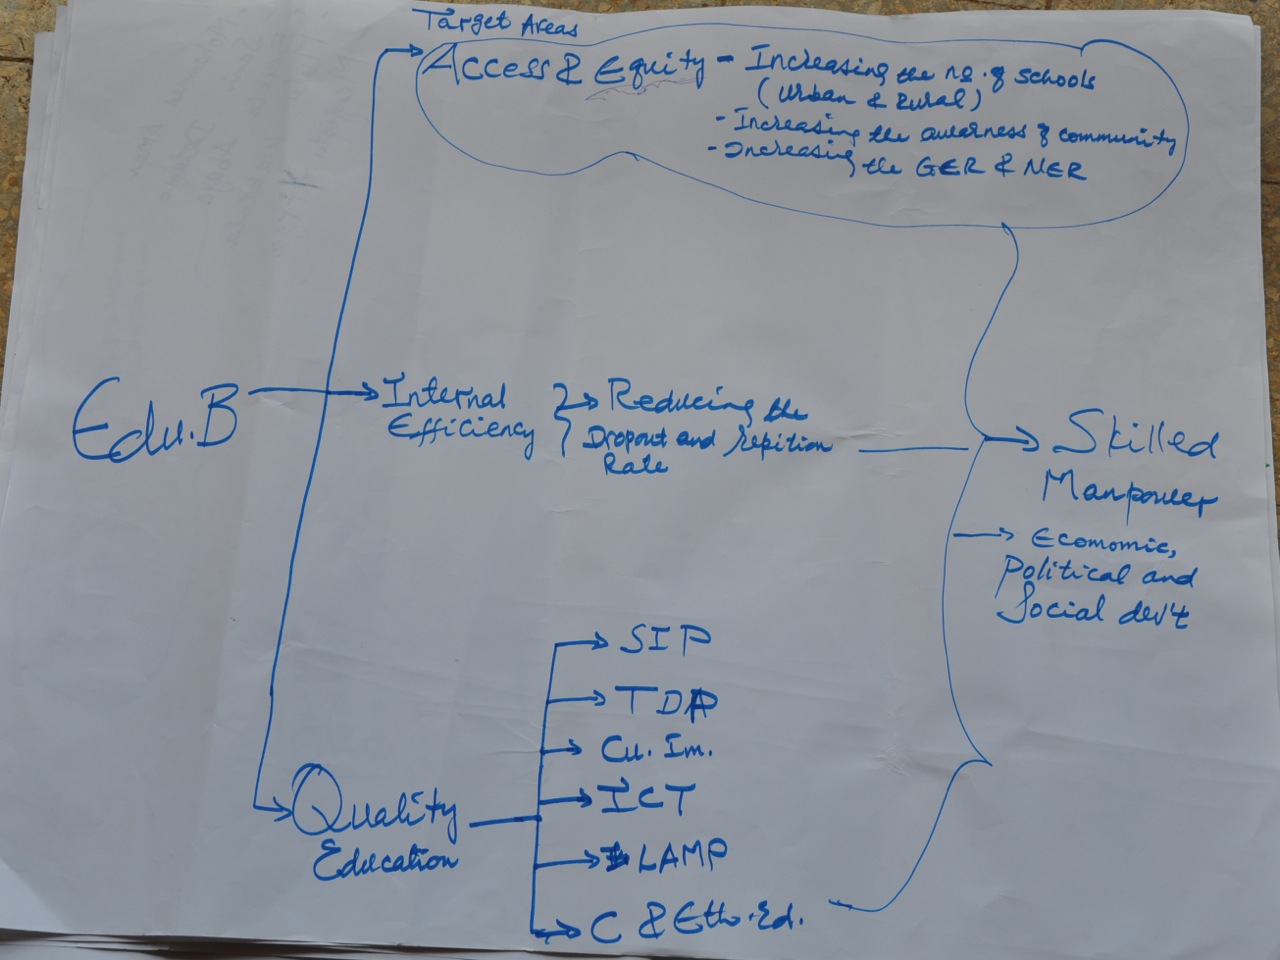 Target Areas
Access & Equity - Increasing the no. of schools
(Urban & Rural)
- Increasing the awarness of community
- Increasing the GER & NER
Edu.B
Internal
Efficiency
Reducing the
Dropout and repition
Rate
Skilled
Manpower
Economic,
Political and
Social dev't
Quality
Education
SIP
TDP
Cu. Im.
ICT
LAMP
C & Eth. Ed.